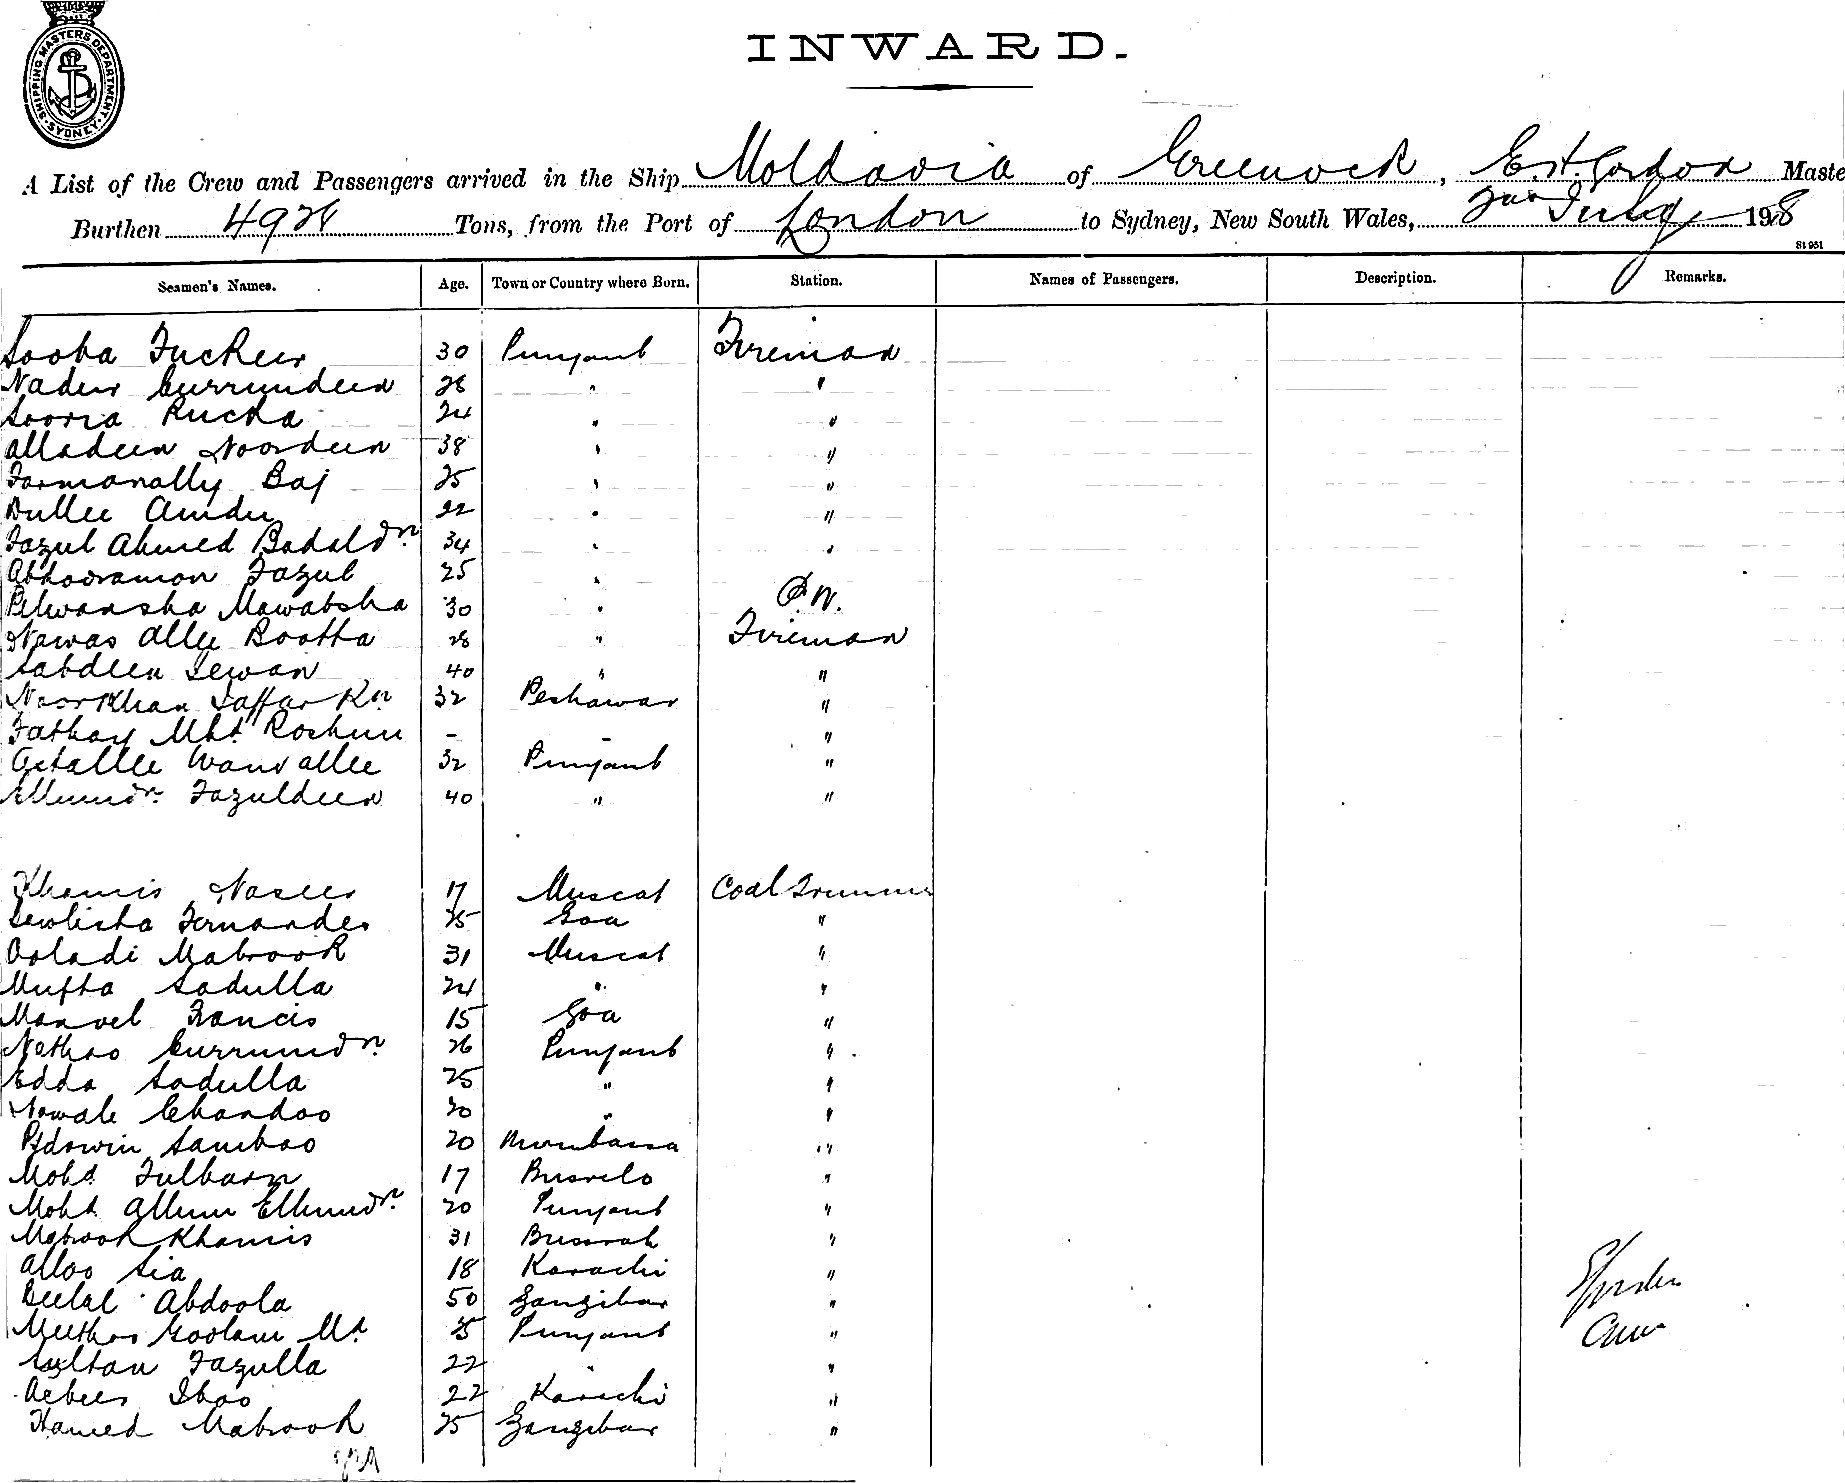 SHIPPING MASTERS DEPARTMENT SYDNEY
INWARD.
A List of the Crew and Passengers arrived in the Ship Moldavia of Greenock, E.H. Gordon Maste
Burthen 4928 Tons, from the Port of London to Sydney, New South Wales, July 1908
St 951
Seamen's Names. Age. Town or Country where Born. Station. Names of Passengers. Description. Remarks.
Sooba Fuckeer 30 Punjaub Fireman
Nadir Currumdeen 28 " "
Rucha 24 " "
Alladeen Noordeen 38 " "
Farmanally Baj 25 " "
Dullee Amdu 22 " "
Fazul Ahmed Badaldn 34 " "
Abhooramon Fazul 25 "
Pelwansha Mawabsha 30 " P.W.
Nawas Allee Bootha 28 " Fireman
Sabdeen Dewan 40 " "
Noorkhan Jaffar Kn 32 Peshawar "
Fathay Mht. Roshun - - "
Actallee Wansallee 32 Punjaub "
Ellumdn. Fazuldeen 40 " "
Khamis Naseer 17 Muscat Coal Trimmer
Fernandes 25 Goa "
Ooladi Mabrook 31 Muscat "
Mufta Sadulla 24 " "
Manoel Francis 15 Goa "
Nathoo Currumdn. 26 Punjaub "
Edda Sadulla 25 " "
Nawab Chandoo 20 " "
Samboo 20 Mombassa "
Mohd Fulbarn 17 "
Mohd Allum Ellumdn. 20 Punjaub "
Mabrook Khamis 31 Bussrah "
Alloo Sia 18 Karachi "
Beelal Abdoola 50 Zanzibar "
Meethoo Goolam Md 25 Punjaub "
Sultan Fazulla 22 " "
22 Karachi "
Hamed Mabrook 25 Zanzibar "